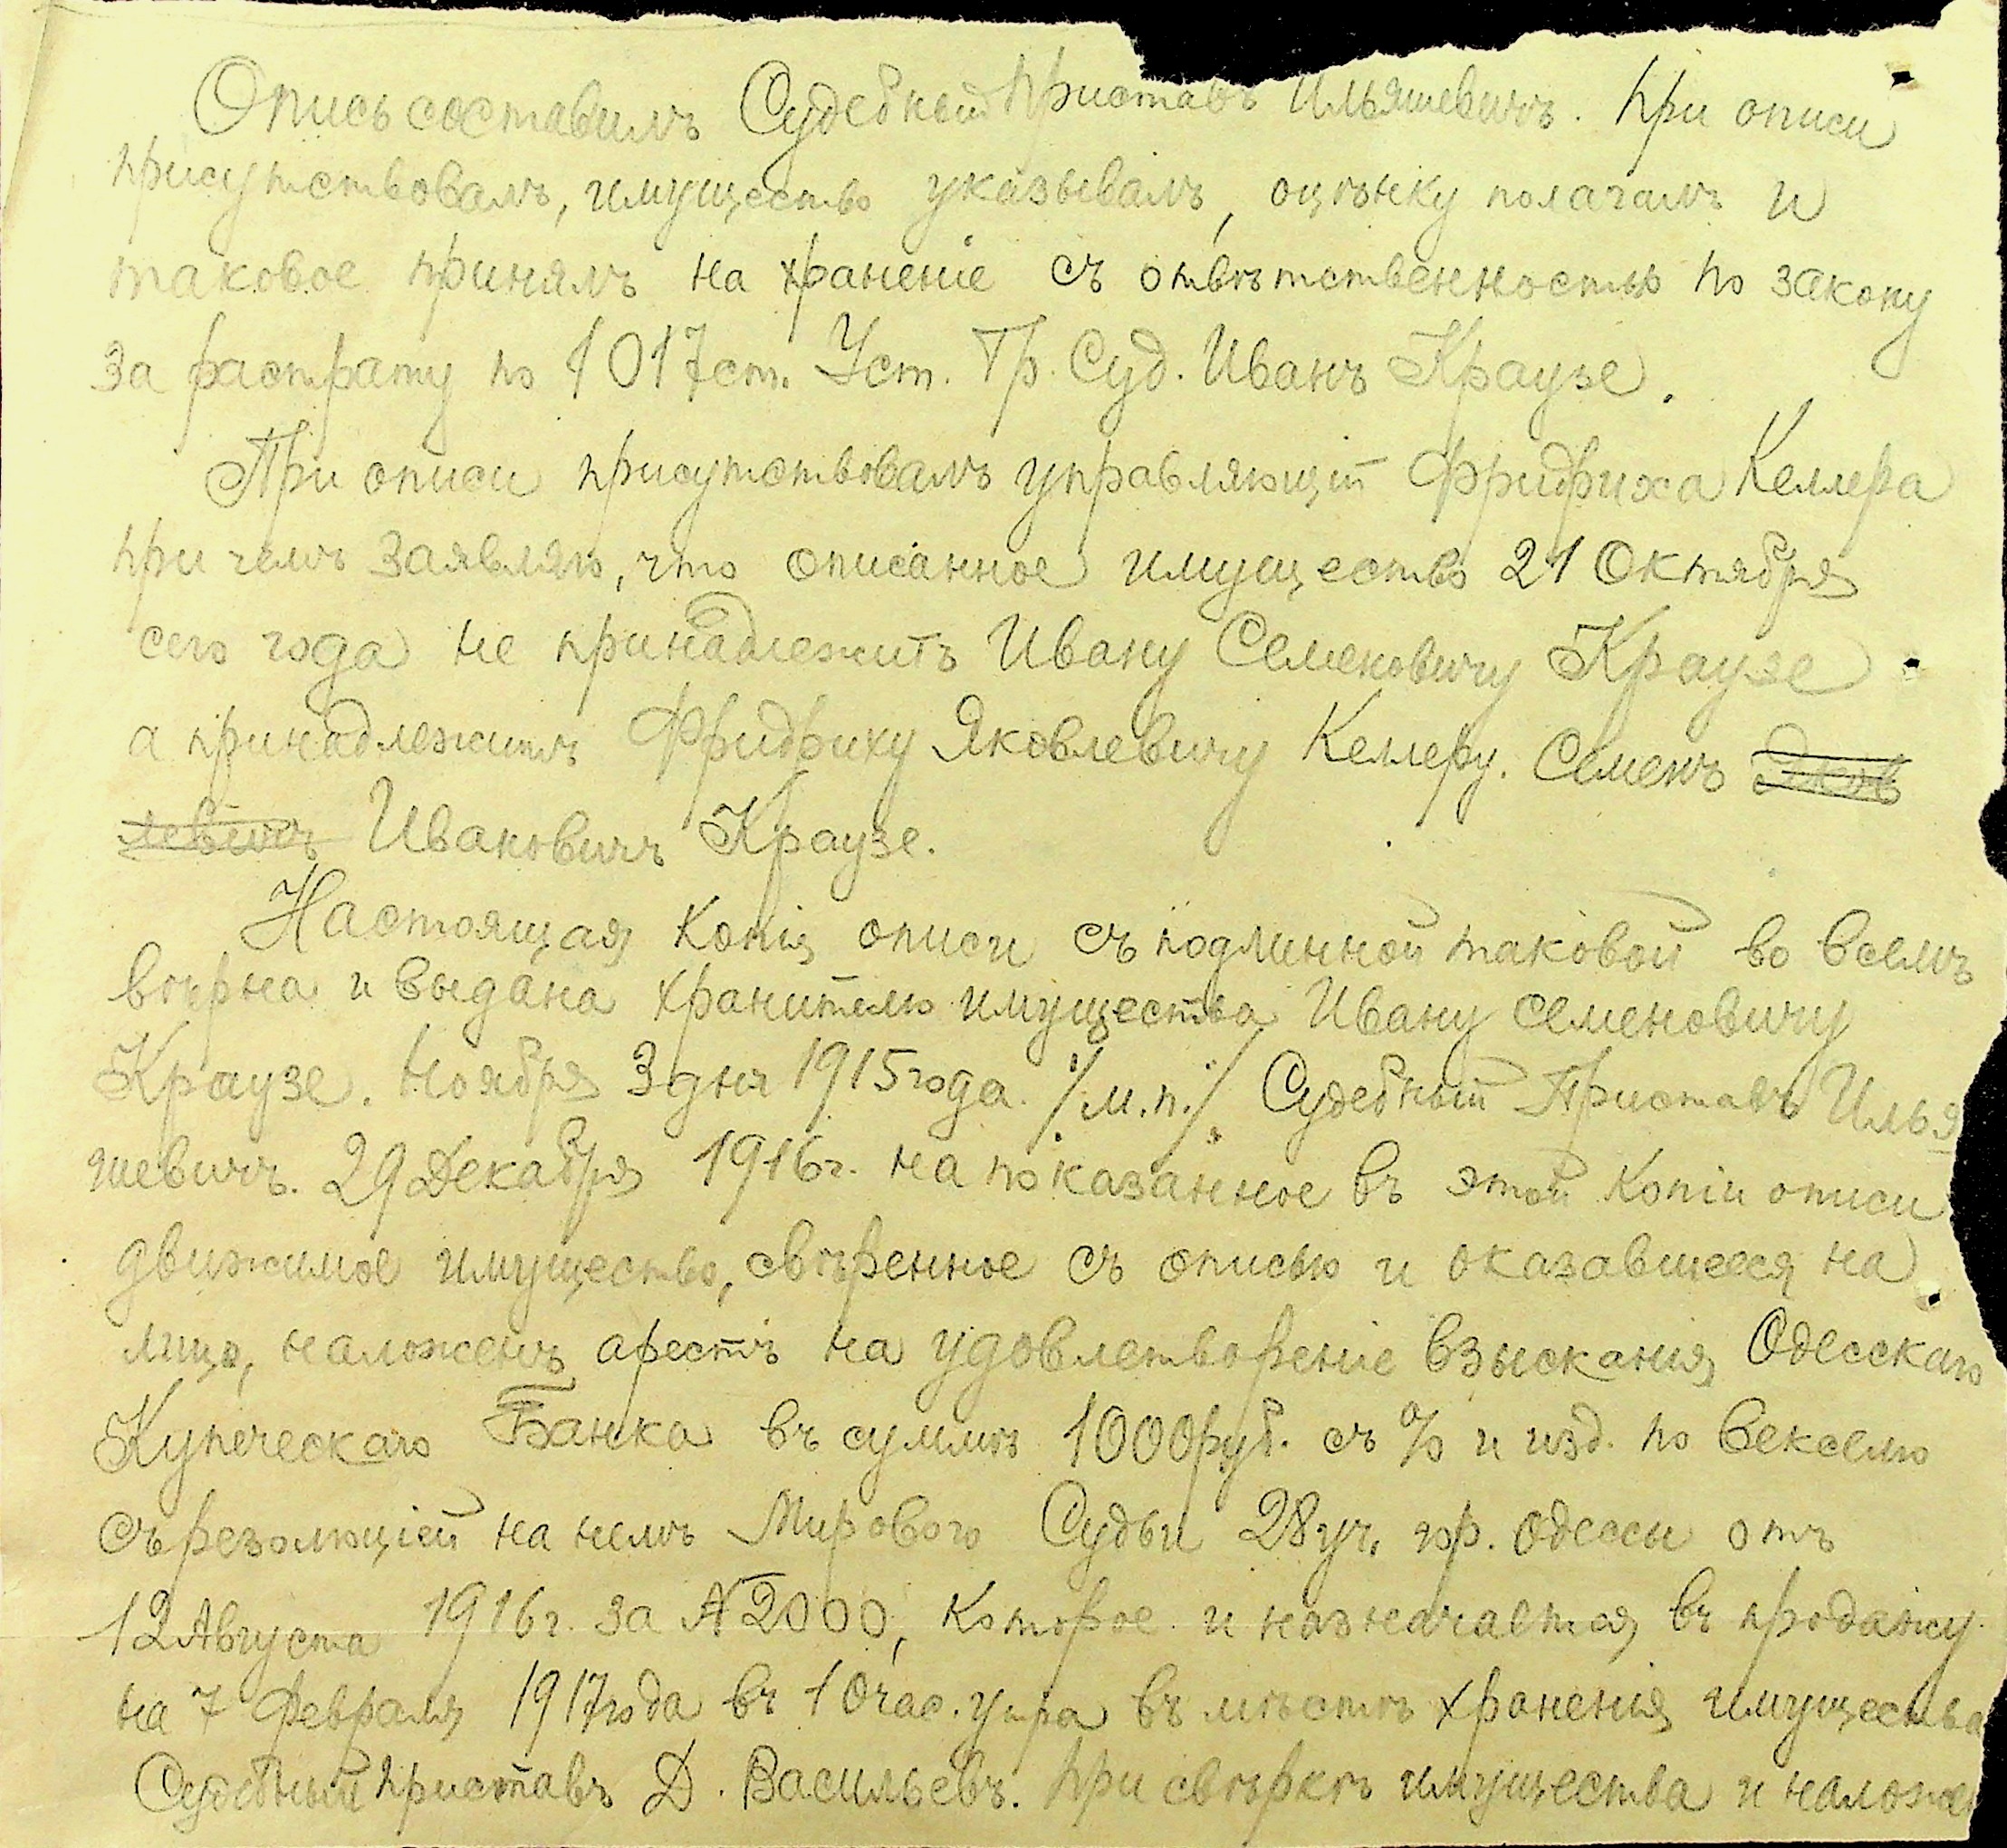 Опись составилъ Судебный Приставъ Ильяшевичъ. При описи
присутствовалъ, имущество указывалъ, оцѣнку полагалъ и
таковое принялъ на храненіе съ отвѣтственностью по закону
за растрату по 1017 ст. Уст. Гр. Суд. Иванъ Краузе.
При описи присутствовалъ управляющій Фридриха Келлера
при чемъ заявляю, что описанное имущество 21 Октября
сего года не принадлежитъ Ивану Семеновичу Краузе
а принадлежитъ Фридриху Яковлевичу Келлеру. Семенъ Яков
левичъ Ивановичъ Краузе.
Настоящая копія описи съ подлинной таковой во всемъ
вѣрна и выдана хранителю имущества Ивану Семеновичу
Краузе. Ноября 3 дня 1915 года. /м.п./ Судебный Приставъ Илья
шевичъ. 29 Декабря 1916 г. на показанное въ этой копіи описи
движимое имущество, свѣренное съ описью и оказавшееся на
лицо, наложенъ арестъ на удовлетвореніе взысканія Одесскаго
Купеческаго Банка въ суммѣ 1000 руб. съ % и изд. по векселю
съ резолюціей на немъ Мирового Судьи 28 уч. гор. Одессы отъ
12 Августа 1916 г. за № 2000, которое и назначается въ продажу
на 7 Февраля 1917 года въ 10 час. утра въ мѣстѣ храненія имущества
Судебный Приставъ Д. Васильевъ. При свѣркѣ имущества и наложе